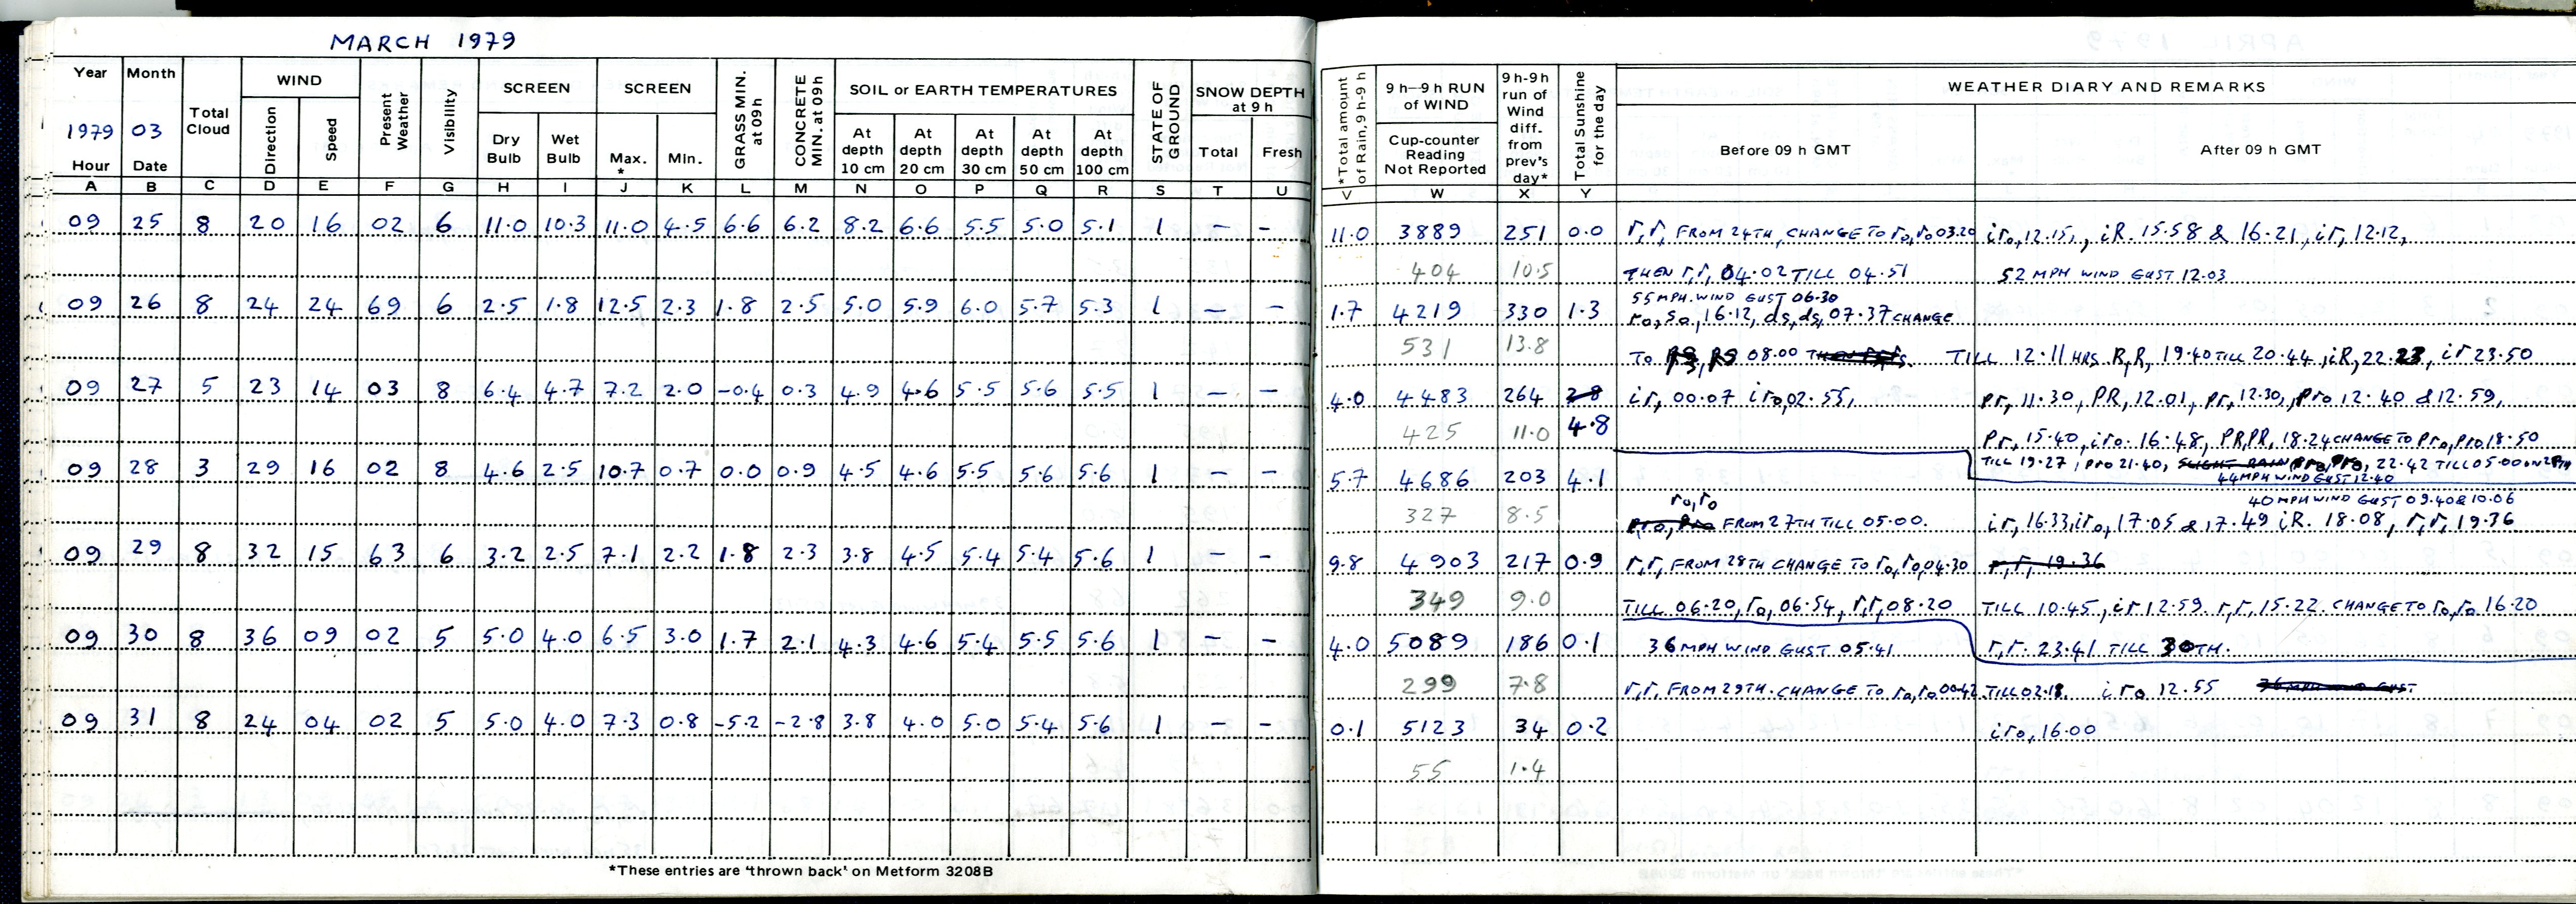 MARCH 1979
Year Month Total Cloud WIND Present Weather Visibility SCREEN SCREEN GRASS MIN. at 09h CONCRETE MIN. at 09h SOIL or EARTH TEMPERATURES STATE OF GROUND SNOW DEPTH at 9 h *Total amount of Rain, 9 h-9 h 9 h–9 h RUN of WIND 9 h-9h run of Wind diff. from prev's day* Total Sunshine for the day WEATHER DIARY AND REMARKS
1979 03 Direction Speed Dry Bulb Wet Bulb Max. * Min. At depth 10 cm At depth 20 cm At depth 30 cm At depth 50 cm At depth 100 cm Total Fresh Cup-counter Reading Not Reported Before 09 h GMT After 09 h GMT
Hour Date
A B C D E F G H I J K L M N O P Q R S T U V W X Y
09 25 8 20 16 02 6 11.0 10.3 11.0 4.5 6.6 6.2 8.2 6.6 5.5 5.0 5.1 1 – – 11.0 3889 251 0.0 r,r, FROM 24TH, CHANGE TO ro,ro 03.20 iro,12.15,, iR. 15.58 & 16.21, ir, 12.12,
404 10.5 THEN r,r, 04.02 TILL 04.51 52 MPH WIND GUST 12.03
55 MPH. WIND GUST 06.30
09 26 8 24 24 69 6 2.5 1.8 12.5 2.3 1.8 2.5 5.0 5.9 6.0 5.7 5.3 1 – – 1.7 4219 330 1.3 ro, so, 16.12, ds, ds, 07.37 CHANGE
531 13.8 TO RS, RS 08.00 TILL 12.11 HRS R,R, 19.40 TILL 20.44, iR, 22.23, ir 23.50
09 27 5 23 14 03 8 6.4 4.7 7.2 2.0 -0.4 0.3 4.9 4.6 5.5 5.6 5.5 1 – – 4.0 4483 264 3.8 ir, 00.07 iro, 02.55, pr, 11.30, PR, 12.01, pr, 12.30,, pro 12.40 & 12.59,
425 11.0 4.8 pr, 15.40, iro. 16.48, PR,PR, 18.24 CHANGE TO pro, pro 18.50
09 28 3 29 16 02 8 4.6 2.5 10.7 0.7 0.0 0.9 4.5 4.6 5.5 5.6 5.6 1 – – 5.7 4686 203 4.1 TILL 19.27, pro 21.40, SLIGHT RAIN pro, pro, 22.42 TILL 05.00 ON 28TH
44 MPH WIND GUST 12.40
ro, ro 40 MPH WIND GUST 09.40 & 10.06
327 8.5 pro, pro FROM 27TH TILL 05.00. ir, 16.33, iro, 17.05 & 17.49 iR. 18.08, r,r, 19.36
09 29 8 32 15 63 6 3.2 2.5 7.1 2.2 1.8 2.3 3.8 4.5 5.4 5.4 5.6 1 – – 9.8 4903 217 0.9 r,r, FROM 28TH CHANGE TO ro, ro, 04.30 r,r, 19.36
349 9.0 TILL 06.20, ro, 06.54, r,r, 08.20 TILL 10.45, ir 12.59. r,r, 15.22. CHANGE TO ro, ro 16.20
09 30 8 36 09 02 5 5.0 4.0 6.5 3.0 1.7 2.1 4.3 4.6 5.4 5.5 5.6 1 – – 4.0 5089 186 0.1 36 MPH WIND GUST 05.41 r,r. 23.41 TILL 30TH.
299 7.8 r,r, FROM 29TH. CHANGE TO ro, ro 00.42 TILL 02.18. iro 12.55 36 MPH WIND GUST
09 31 8 24 04 02 5 5.0 4.0 7.3 0.8 -5.2 -2.8 3.8 4.0 5.0 5.4 5.6 1 – – 0.1 5123 34 0.2 iro, 16.00
55 1.4
*These entries are 'thrown back' on Metform 3208B